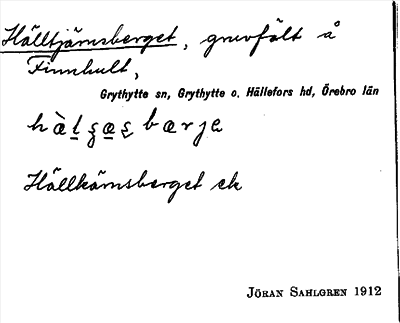 Hälltjärnsberget, gruvfält å
Finnhult,
Grythytte sn, Grythytte o. Hällefors hd, Örebro län
Hällkärnsberget ek
Jöran Sahlgren 1912